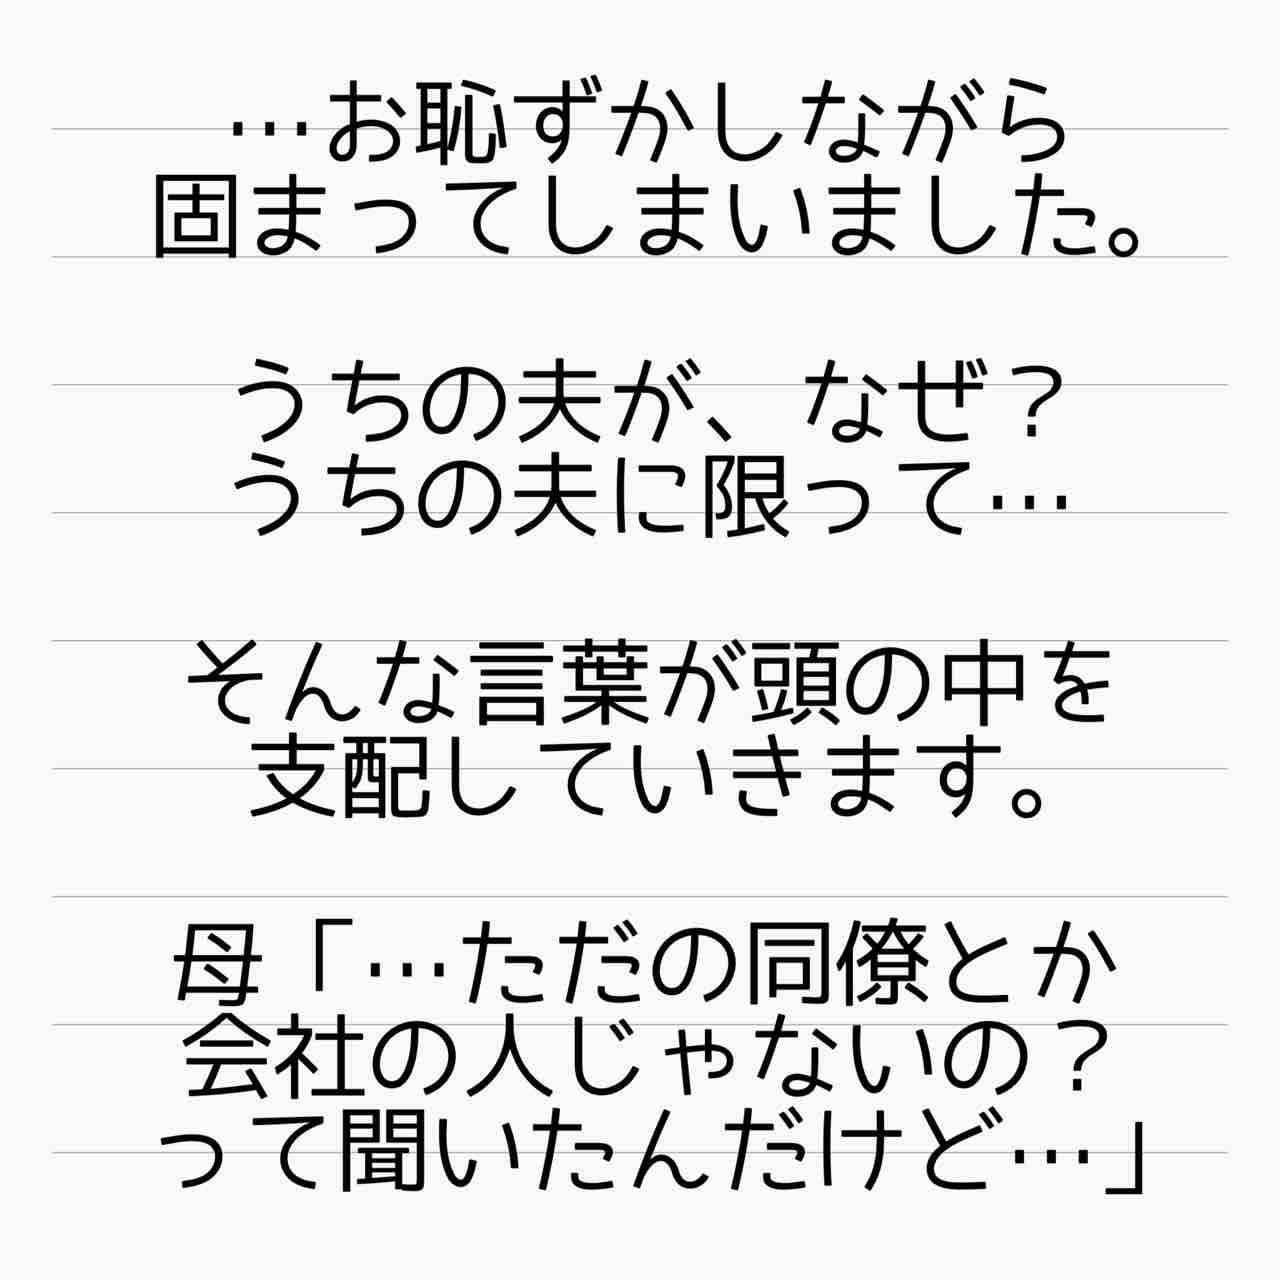 …お恥ずかしながら
固まってしまいました。
うちの夫が、なぜ？
うちの夫に限って…
そんな言葉が頭の中を
支配していきます。
母「…ただの同僚とか
会社の人じゃないの？
って聞いたんだけど…」